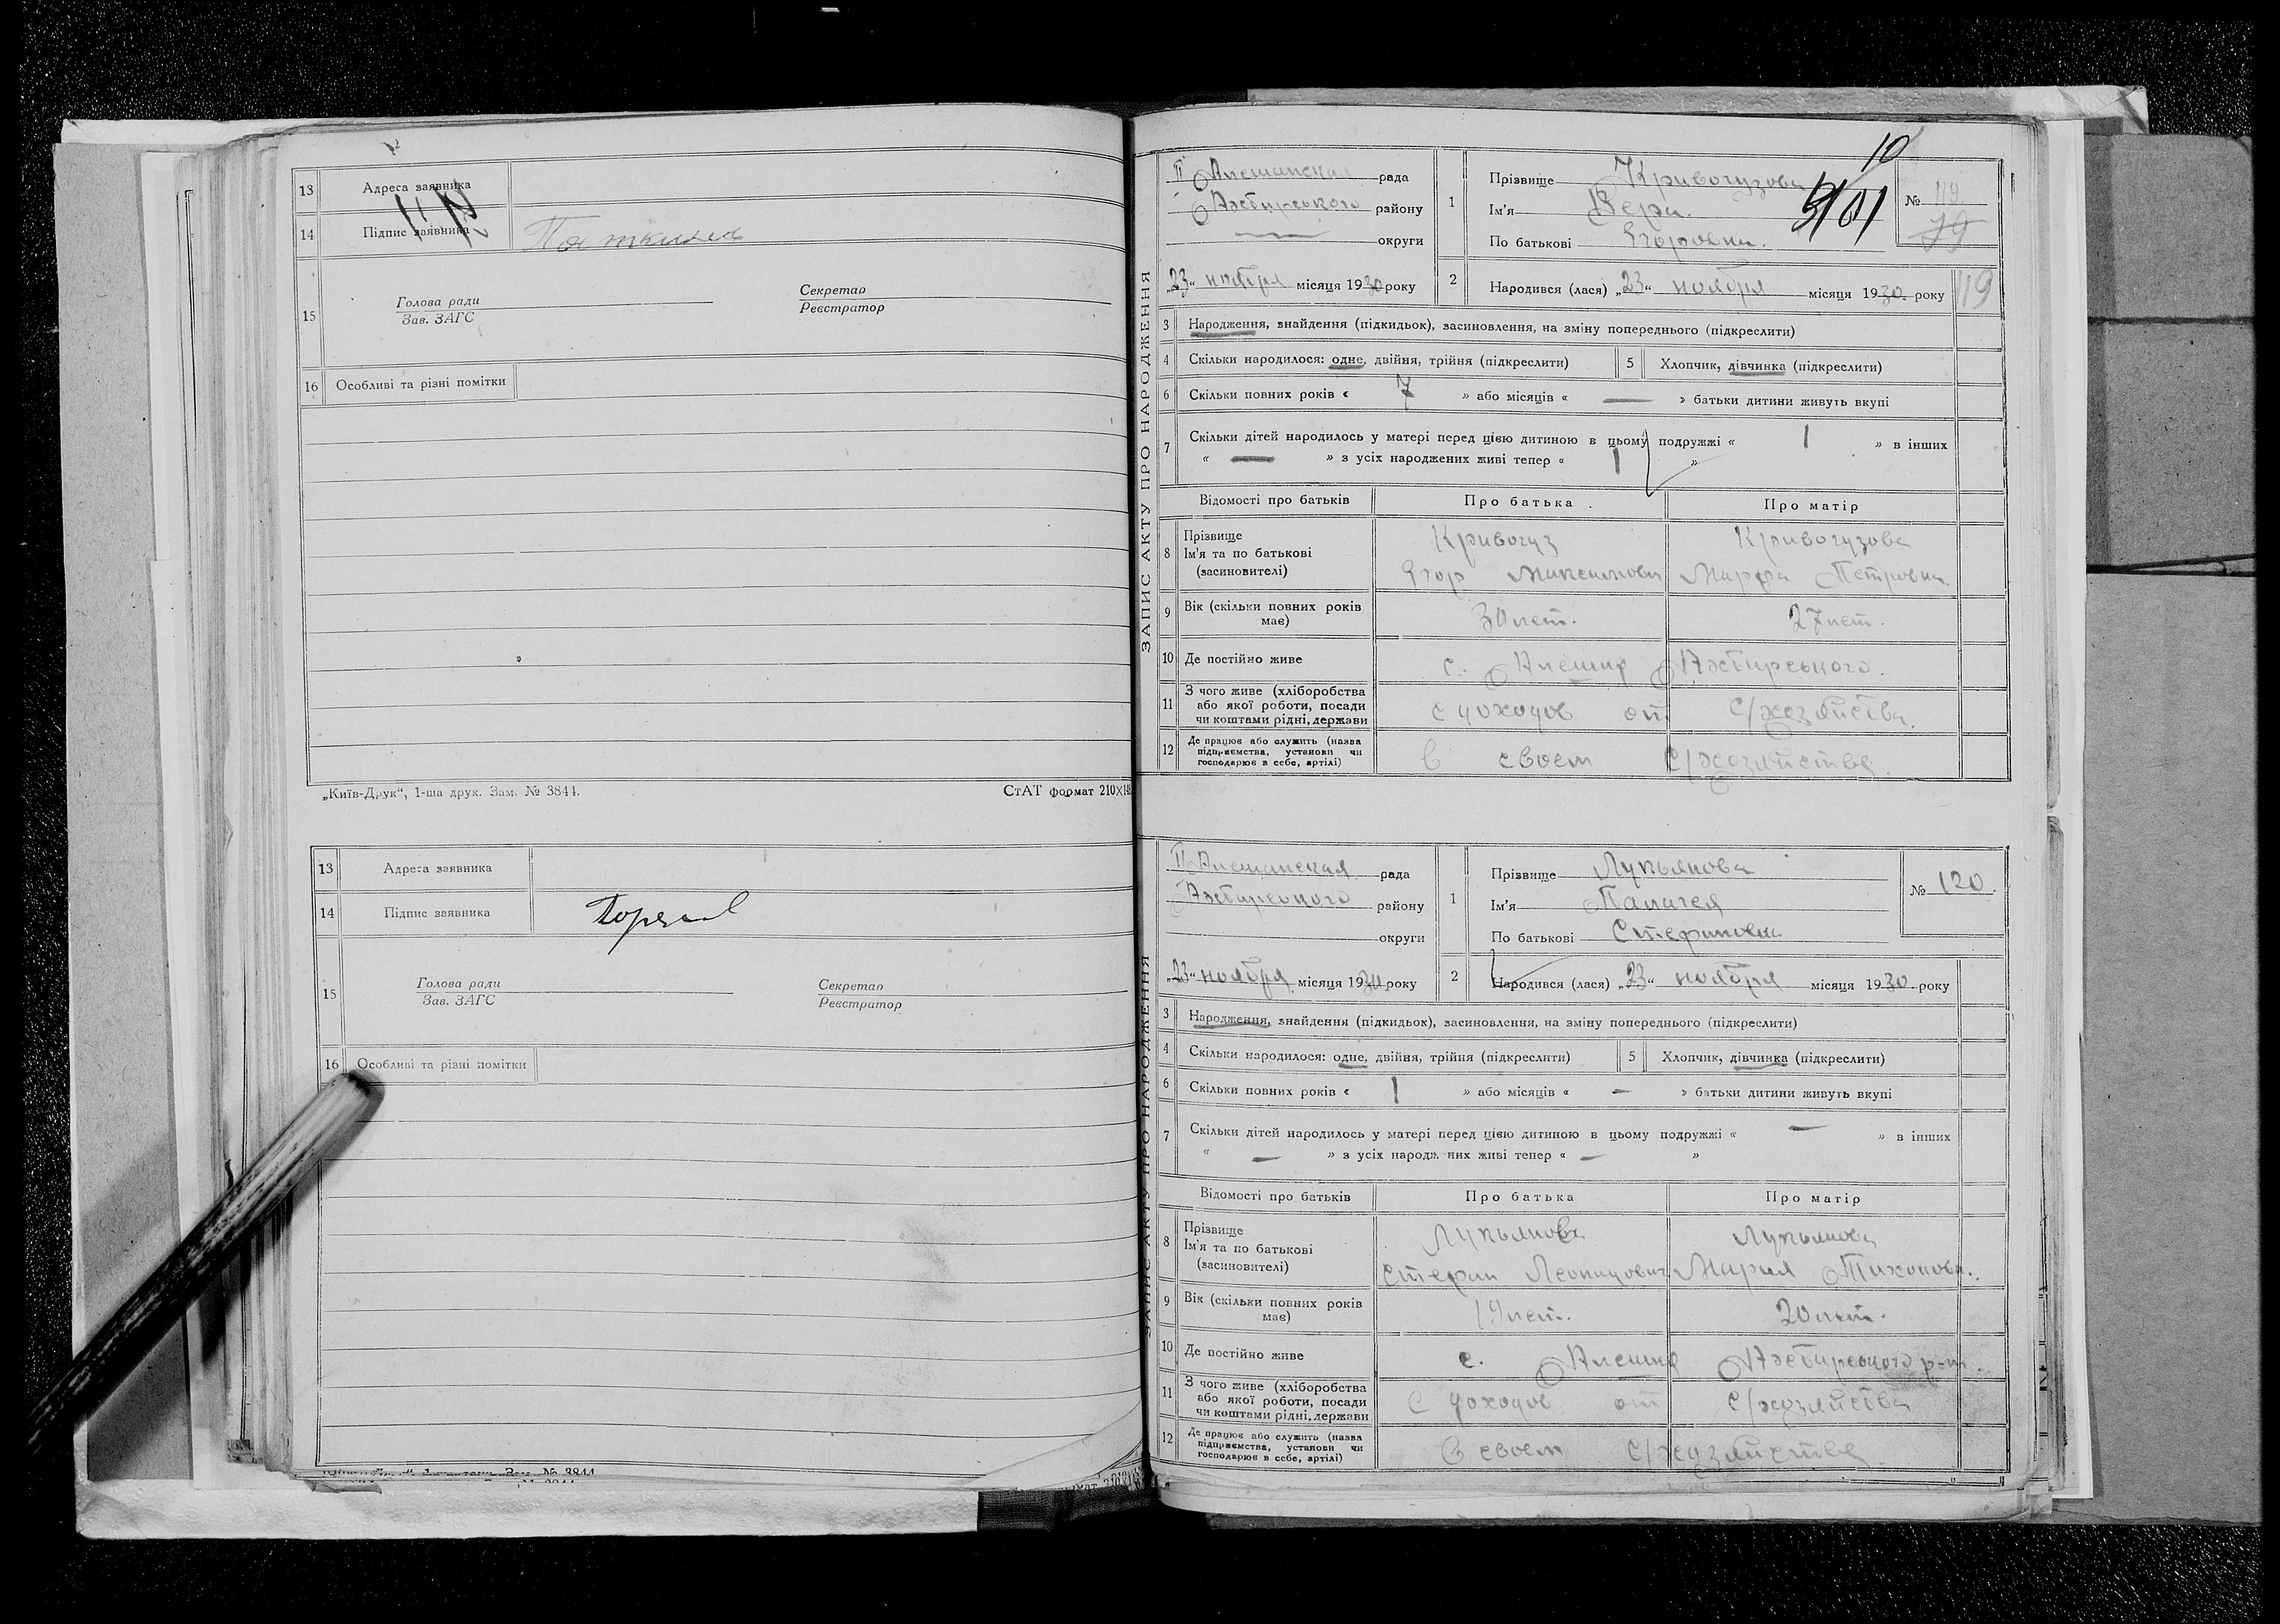 13 Адреса заявника
14 Підпис заявника
15 Голова ради
Зав. ЗАГС
Секретар
Реєстратор
16 Особливі та різні помітки
„Київ-Друк“, 1-ша друк. Зам. № 3844.
СтАТ формат 210X148
13 Адреса заявника
14 Підпис заявника
15 Голова ради
Зав. ЗАГС
Секретар
Реєстратор
16 Особливі та різні помітки
ЗАПИС АКТУ ПРО НАРОДЖЕННЯ
II Алешанская рада
Ахтырського району
округи
„23“ ноября місяця 1930 року
1 Прізвище Кривогузова
Ім'я Вера
По батькові Егоровна
10
№ 119
79
2 Народився (лася) „23“ ноября місяця 1930 року
119
3 Народження, знайдення (підкидьок), засиновлення, на зміну попереднього (підкреслити)
4 Скільки народилося: одне, двійня, трійня (підкреслити) 5 Хлопчик, дівчинка (підкреслити)
6 Скільки повних років « 7 » або місяців « — » батьки дитини живуть вкупі
7 Скільки дітей народилось у матері перед цією дитиною в цьому подружжі « 1 » в інших
« — » з усіх народжених живі тепер « 1 »
Відомості про батьків Про батька Про матір
8 Прізвище Кривогуз Кривогузова
Ім'я та по батькові
(засиновителі) Егор Максимович Марфа Петровна
9 Вік (скільки повних років
має) 30 лет. 27 лет.
10 Де постійно живе с. Алешня Ахтырського.
11 З чого живе (хліборобства
або якої роботи, посади
чи коштами рідні, держави с доходов от с/хозяйства.
12 Де працює або служить (назва
підприємства, установи чи
господарює в себе, артілі) в своем с/хозяйстве.
ЗАПИС АКТУ ПРО НАРОДЖЕННЯ
II Алешанская рада
Ахтырского району
округи
„23“ ноября місяця 1930 року
1 Прізвище Лукьянова
Ім'я Палагея
По батькові Стефановна
№ 120
2 Народився (лася) „23“ ноября місяця 1930 року
3 Народження, знайдення (підкидьок), засиновлення, на зміну попереднього (підкреслити)
4 Скільки народилося: одне, двійня, трійня (підкреслити) 5 Хлопчик, дівчинка (підкреслити)
6 Скільки повних років « 1 » або місяців « — » батьки дитини живуть вкупі
7 Скільки дітей народилось у матері перед цією дитиною в цьому подружжі « — » в інших
« — » з усіх народжених живі тепер « — »
Відомості про батьків Про батька Про матір
8 Прізвище Лукьянова Лукьянова
Ім'я та по батькові
(засиновителі) Стефан Леонидович Мария Тихоновн.
9 Вік (скільки повних років
має) 19 лет. 20 лет.
10 Де постійно живе с. Алешня Ахтырського р-на.
11 З чого живе (хліборобства
або якої роботи, посади
чи коштами рідні, держави с доходов от с/хозяйства
12 Де працює або служить (назва
підприємства, установи чи
господарює в себе, артілі) в своем с/хозяйстве.